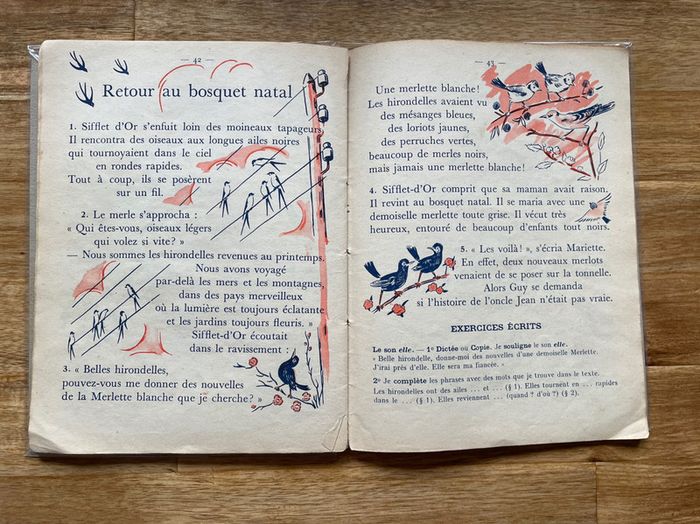 — 42 —
Retour au bosquet natal
1. Sifflet d'Or s'enfuit loin des moineaux tapageurs.
Il rencontra des oiseaux aux longues ailes noires
qui tournoyaient dans le ciel
en rondes rapides.
Tout à coup, ils se posèrent
sur un fil.
2. Le merle s'approcha :
« Qui êtes-vous, oiseaux légers
qui volez si vite? »
— Nous sommes les hirondelles revenues au printemps.
Nous avons voyagé
par-delà les mers et les montagnes,
dans des pays merveilleux
où la lumière est toujours éclatante
et les jardins toujours fleuris. »
Sifflet-d'Or écoutait
dans le ravissement :
3. « Belles hirondelles,
pouvez-vous me donner des nouvelles
de la Merlette blanche que je cherche? »
— 43 —
Une merlette blanche!
Les hirondelles avaient vu
des mésanges bleues,
des loriots jaunes,
des perruches vertes,
beaucoup de merles noirs,
mais jamais une merlette blanche!
4. Sifflet-d'Or comprit que sa maman avait raison.
Il revint au bosquet natal. Il se maria avec une
demoiselle merlette toute grise. Il vécut très
heureux, entouré de beaucoup d'enfants tout noirs.
5. « Les voilà! », s'écria Mariette.
En effet, deux nouveaux merlots
venaient de se poser sur la tonnelle.
Alors Guy se demanda
si l'histoire de l'oncle Jean n'était pas vraie.
EXERCICES ÉCRITS
Le son elle. — 1º Dictée ou Copie. Je souligne le son elle.
« Belle hirondelle, donne-moi des nouvelles d'une demoiselle Merlette.
J'irai près d'elle. Elle sera ma fiancée. »
2º Je complète les phrases avec des mots que je trouve dans le texte.
Les hirondelles ont des ailes ... et ... (§ 1). Elles tournent en ... rapides
dans le ... (§ 1). Elles reviennent ... (quand ? d'où ?) (§ 2).